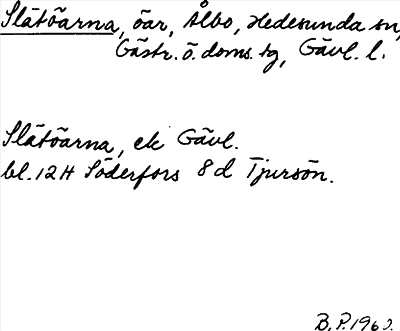 Slätöarna, öar, Ålbo, Hedesunda sn,
Gästr. ö. doms. tg, Gävl. l.
Slätöarna, ek Gävl.
bl. 12H Söderfors 8d Tjursön.
B.P. 196